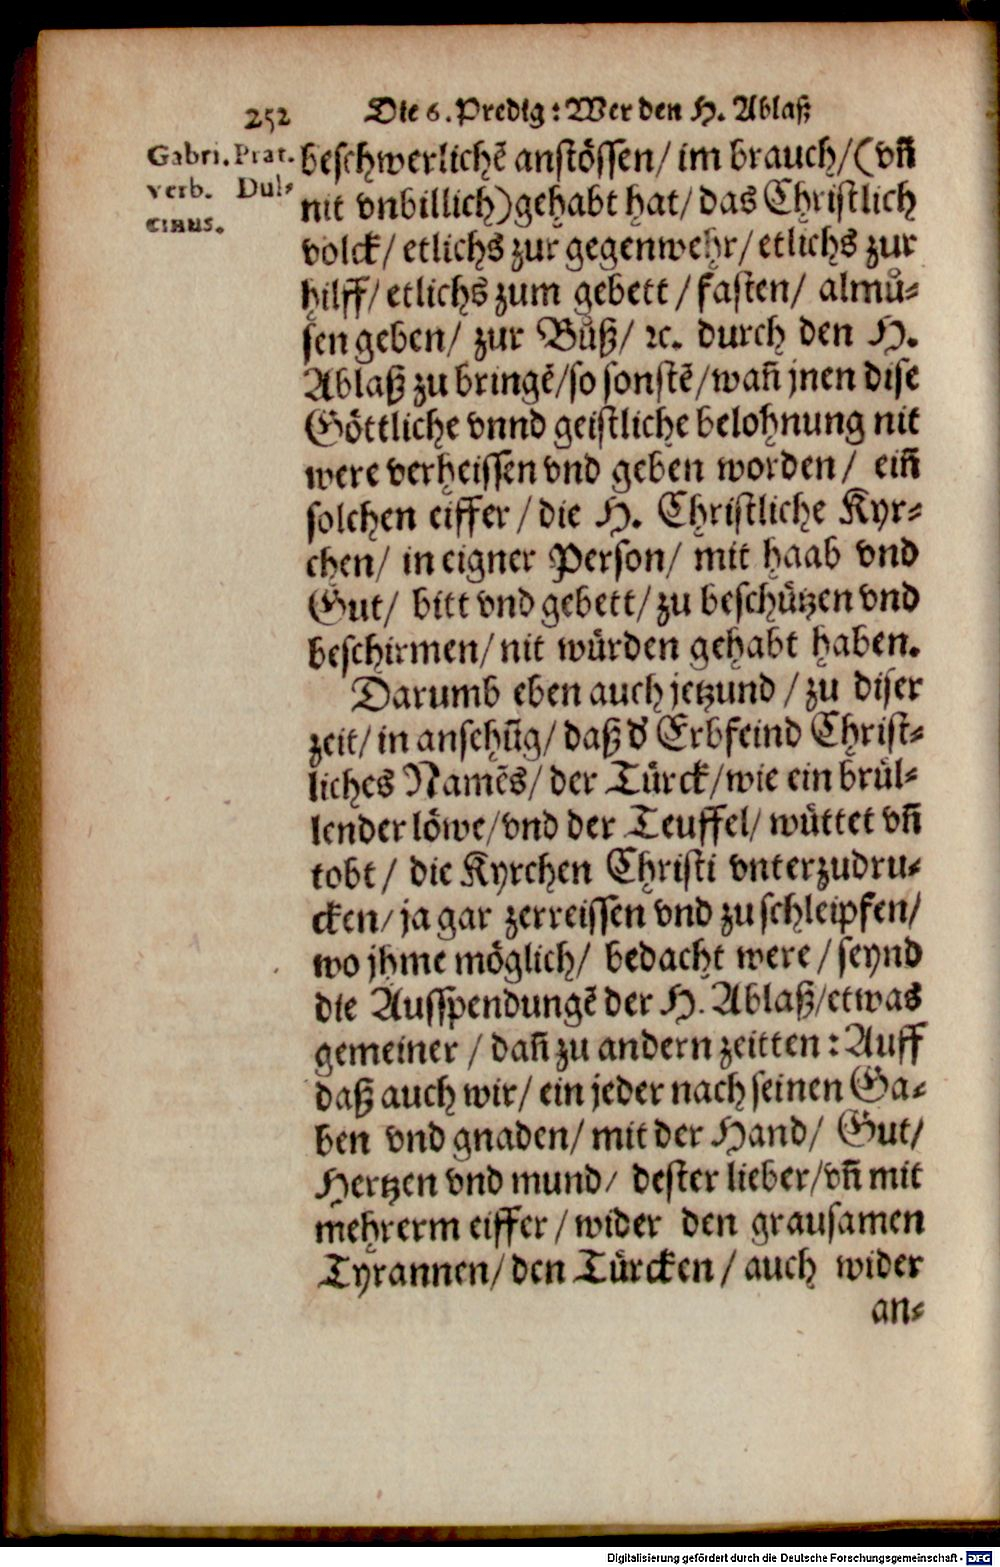 252 Die 6. Predig: Wer den H. Ablaß
Gabri. Prat.
verb. Dul-
cinus.
beschwerlichẽ anstössen/ im brauch/ (vñ
nit vnbillich) gehabt hat/ das Christlich
volck/ etlichs zur gegenwehr/ etlichs zur
hilff/ etlichs zum gebett / fasten/ almuͦ-
sen geben/ zur Buͦß/ ꝛc. durch den H.
Ablaß zu bringẽ/ so sonstẽ/ wañ jnen dise
Göttliche vnnd geistliche belohnung nit
were verheissen vnd geben worden/ eiñ
solchen eiffer / die H. Christliche Kyr-
chen/ in eigner Person/ mit haab vnd
Gut/ bitt vnd gebett/ zu beschützen vnd
beschirmen/ nit würden gehabt haben.
Darumb eben auch jetzund / zu diser
zeit/ in ansehũg/ daß d' Erbfeind Christ-
liches Namẽs/ der Türck/ wie ein brül-
lender löwe/ vnd der Teuffel/ wüttet vñ
tobt / die Kyrchen Christi vnterzudru-
cken/ ja gar zerreissen vnd zu schleipfen/
wo jhme möglich/ bedacht were / seynd
die Ausspendungẽ der H. Ablaß/ etwas
gemeiner / dañ zu andern zeitten: Auff
daß auch wir/ ein jeder nach seinen Ga-
ben vnd gnaden/ mit der Hand/ Gut/
Hertzen vnd mund/ dester lieber/ vñ mit
mehrerm eiffer / wider den grausamen
Tyrannen/ den Türcken / auch wider
an-
Digitalisierung gefördert durch die Deutsche Forschungsgemeinschaft - DFG